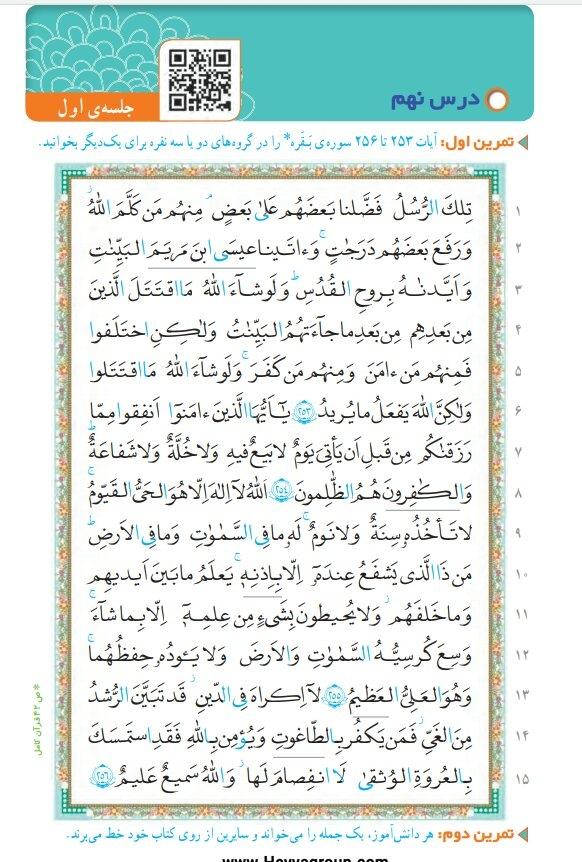 درس نهم
جلسه‌ی اول
تمرین اول: آیات ۲۵۳ تا ۲۵۶ سوره‌ی بَقَره* را در گروه‌های دو یا سه نفره برای یک‌دیگر بخوانید.
۱ تِلكَ الرُّسُلُ فَضَّلنا بَعضَهُم عَلىٰ بَعضٍ ۘ مِنهُم مَن كَلَّمَ اللّٰهُ ۖ
۲ وَ رَفَعَ بَعضَهُم دَرَجٰتٍ ۚ وَ ءاتَينا عيسَى ابنَ مَريَمَ البَيِّنٰتِ
۳ وَ اَيَّدنٰهُ بِروحِ القُدُسِ ۗ وَ لَو شاءَ اللّٰهُ مَا اقتَتَلَ الَّذينَ
۴ مِن بَعدِهِم مِن بَعدِ ما جاءَتهُمُ البَيِّنٰتُ وَ لٰكِنِ اختَلَفوا
۵ فَمِنهُم مَن ءامَنَ وَ مِنهُم مَن كَفَرَ ۚ وَ لَو شاءَ اللّٰهُ مَا اقتَتَلوا
۶ وَ لٰكِنَّ اللّٰهَ يَفعَلُ ما يُريدُ ۲۵۳ يٰا اَيُّهَا الَّذينَ ءامَنوا اَنفِقوا مِمّا
۷ رَزَقنٰكُم مِن قَبلِ اَن يَأتِیَ يَومٌ لا بَيعٌ فيهِ وَ لا خُلَّةٌ وَ لا شَفاعَةٌ ۗ
۸ وَ الكٰفِرونَ هُمُ الظّٰلِمونَ ۲۵۴ اَللّٰهُ لا اِلٰهَ اِلّا هُوَ الحَیُّ القَيّومُ ۚ
۹ لا تَأخُذُهٗ سِنَةٌ وَ لا نَومٌ ۚ لَهٗ ما فِی السَّمٰوٰتِ وَ ما فِی الاَرضِ ۗ
۱۰ مَن ذَا الَّذی يَشفَعُ عِندَهٗ اِلّا بِاِذنِهٖ ۚ يَعلَمُ ما بَينَ اَيديهِم
۱۱ وَ ما خَلفَهُم ۖ وَ لا يُحيطونَ بِشَیءٍ مِن عِلمِهٖ اِلّا بِما شاءَ ۚ
۱۲ وَسِعَ كُرسِيُّهُ السَّمٰوٰتِ وَ الاَرضَ وَ لا يَئودُهٗ حِفظُهُما ۚ
۱۳ وَ هُوَ العَلِیُّ العَظيمُ ۲۵۵ لا اِكراهَ فِی الدّينِ ۖ قَد تَبَيَّنَ الرُّشدُ
۱۴ مِنَ الغَیِّ ۚ فَمَن يَكفُر بِالطّاغوتِ وَ يُؤمِن بِاللّٰهِ فَقَدِ استَمسَكَ
۱۵ بِالعُروَةِ الوُثقىٰ لَا انفِصامَ لَها ۗ وَ اللّٰهُ سَميعٌ عَليمٌ ۲۵۶
* ص ۴۲ قرآن کامل
تمرین دوم: هر دانش‌آموز، یک جمله را می‌خواند و سایرین از روی کتاب خود خط می‌برند.
www.Hayyagroup.com